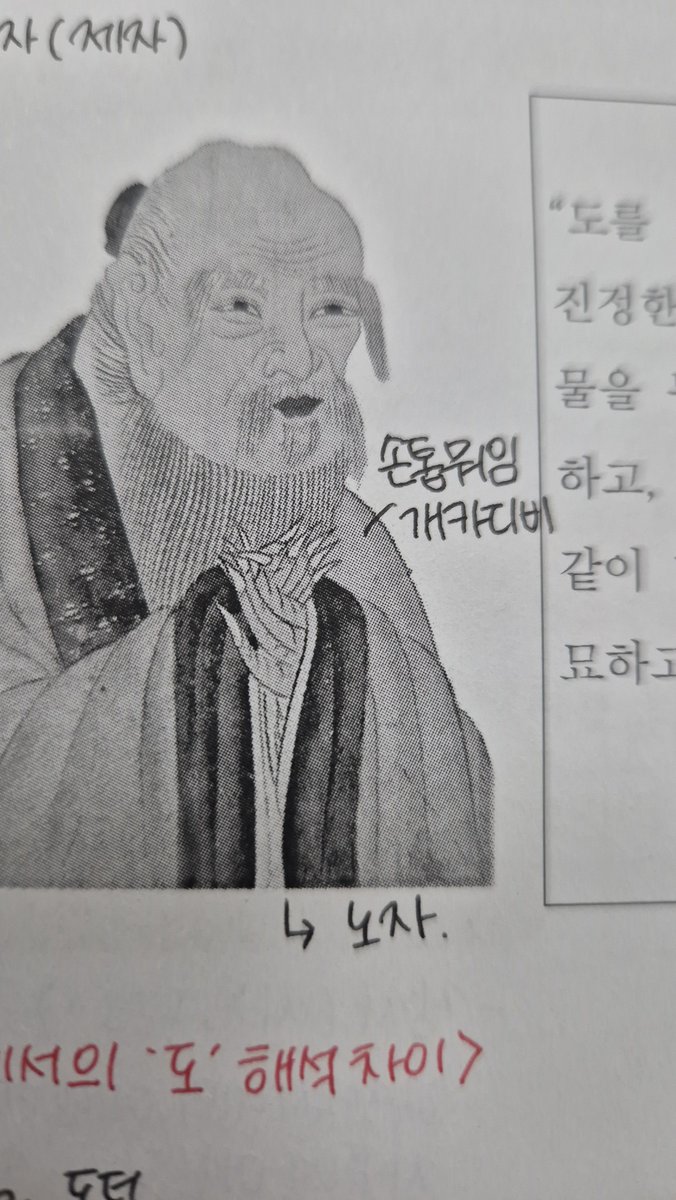 자(제자)
손톱뭐임
개카디비
“도를
진정한
물을
하고,
같이
묘하고
↳ 노자.
서의 '도' 해석차이>